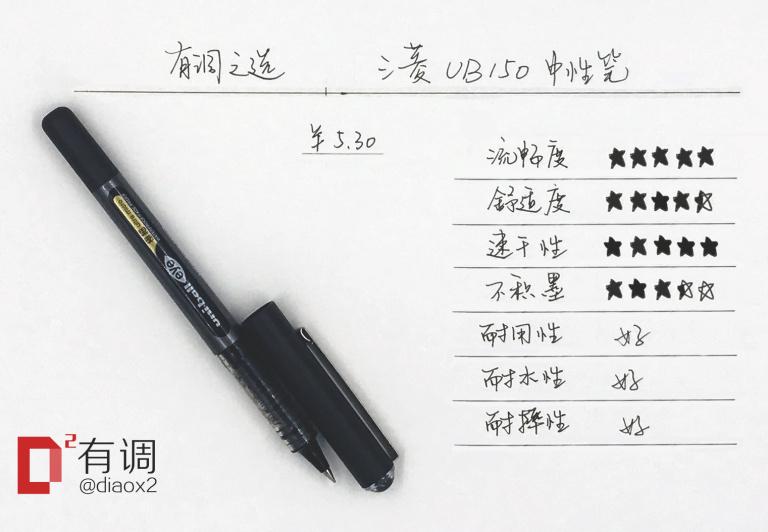 有调之选 三菱 UB150 中性笔
¥ 5.30
流畅度 ★★★★★
舒适度 ★★★★☆
速干性 ★★★★★
不积墨 ★★★☆☆
耐用性 好
耐水性 好
耐摔性 好
uni-ball eye
D² 有调
@diaox2